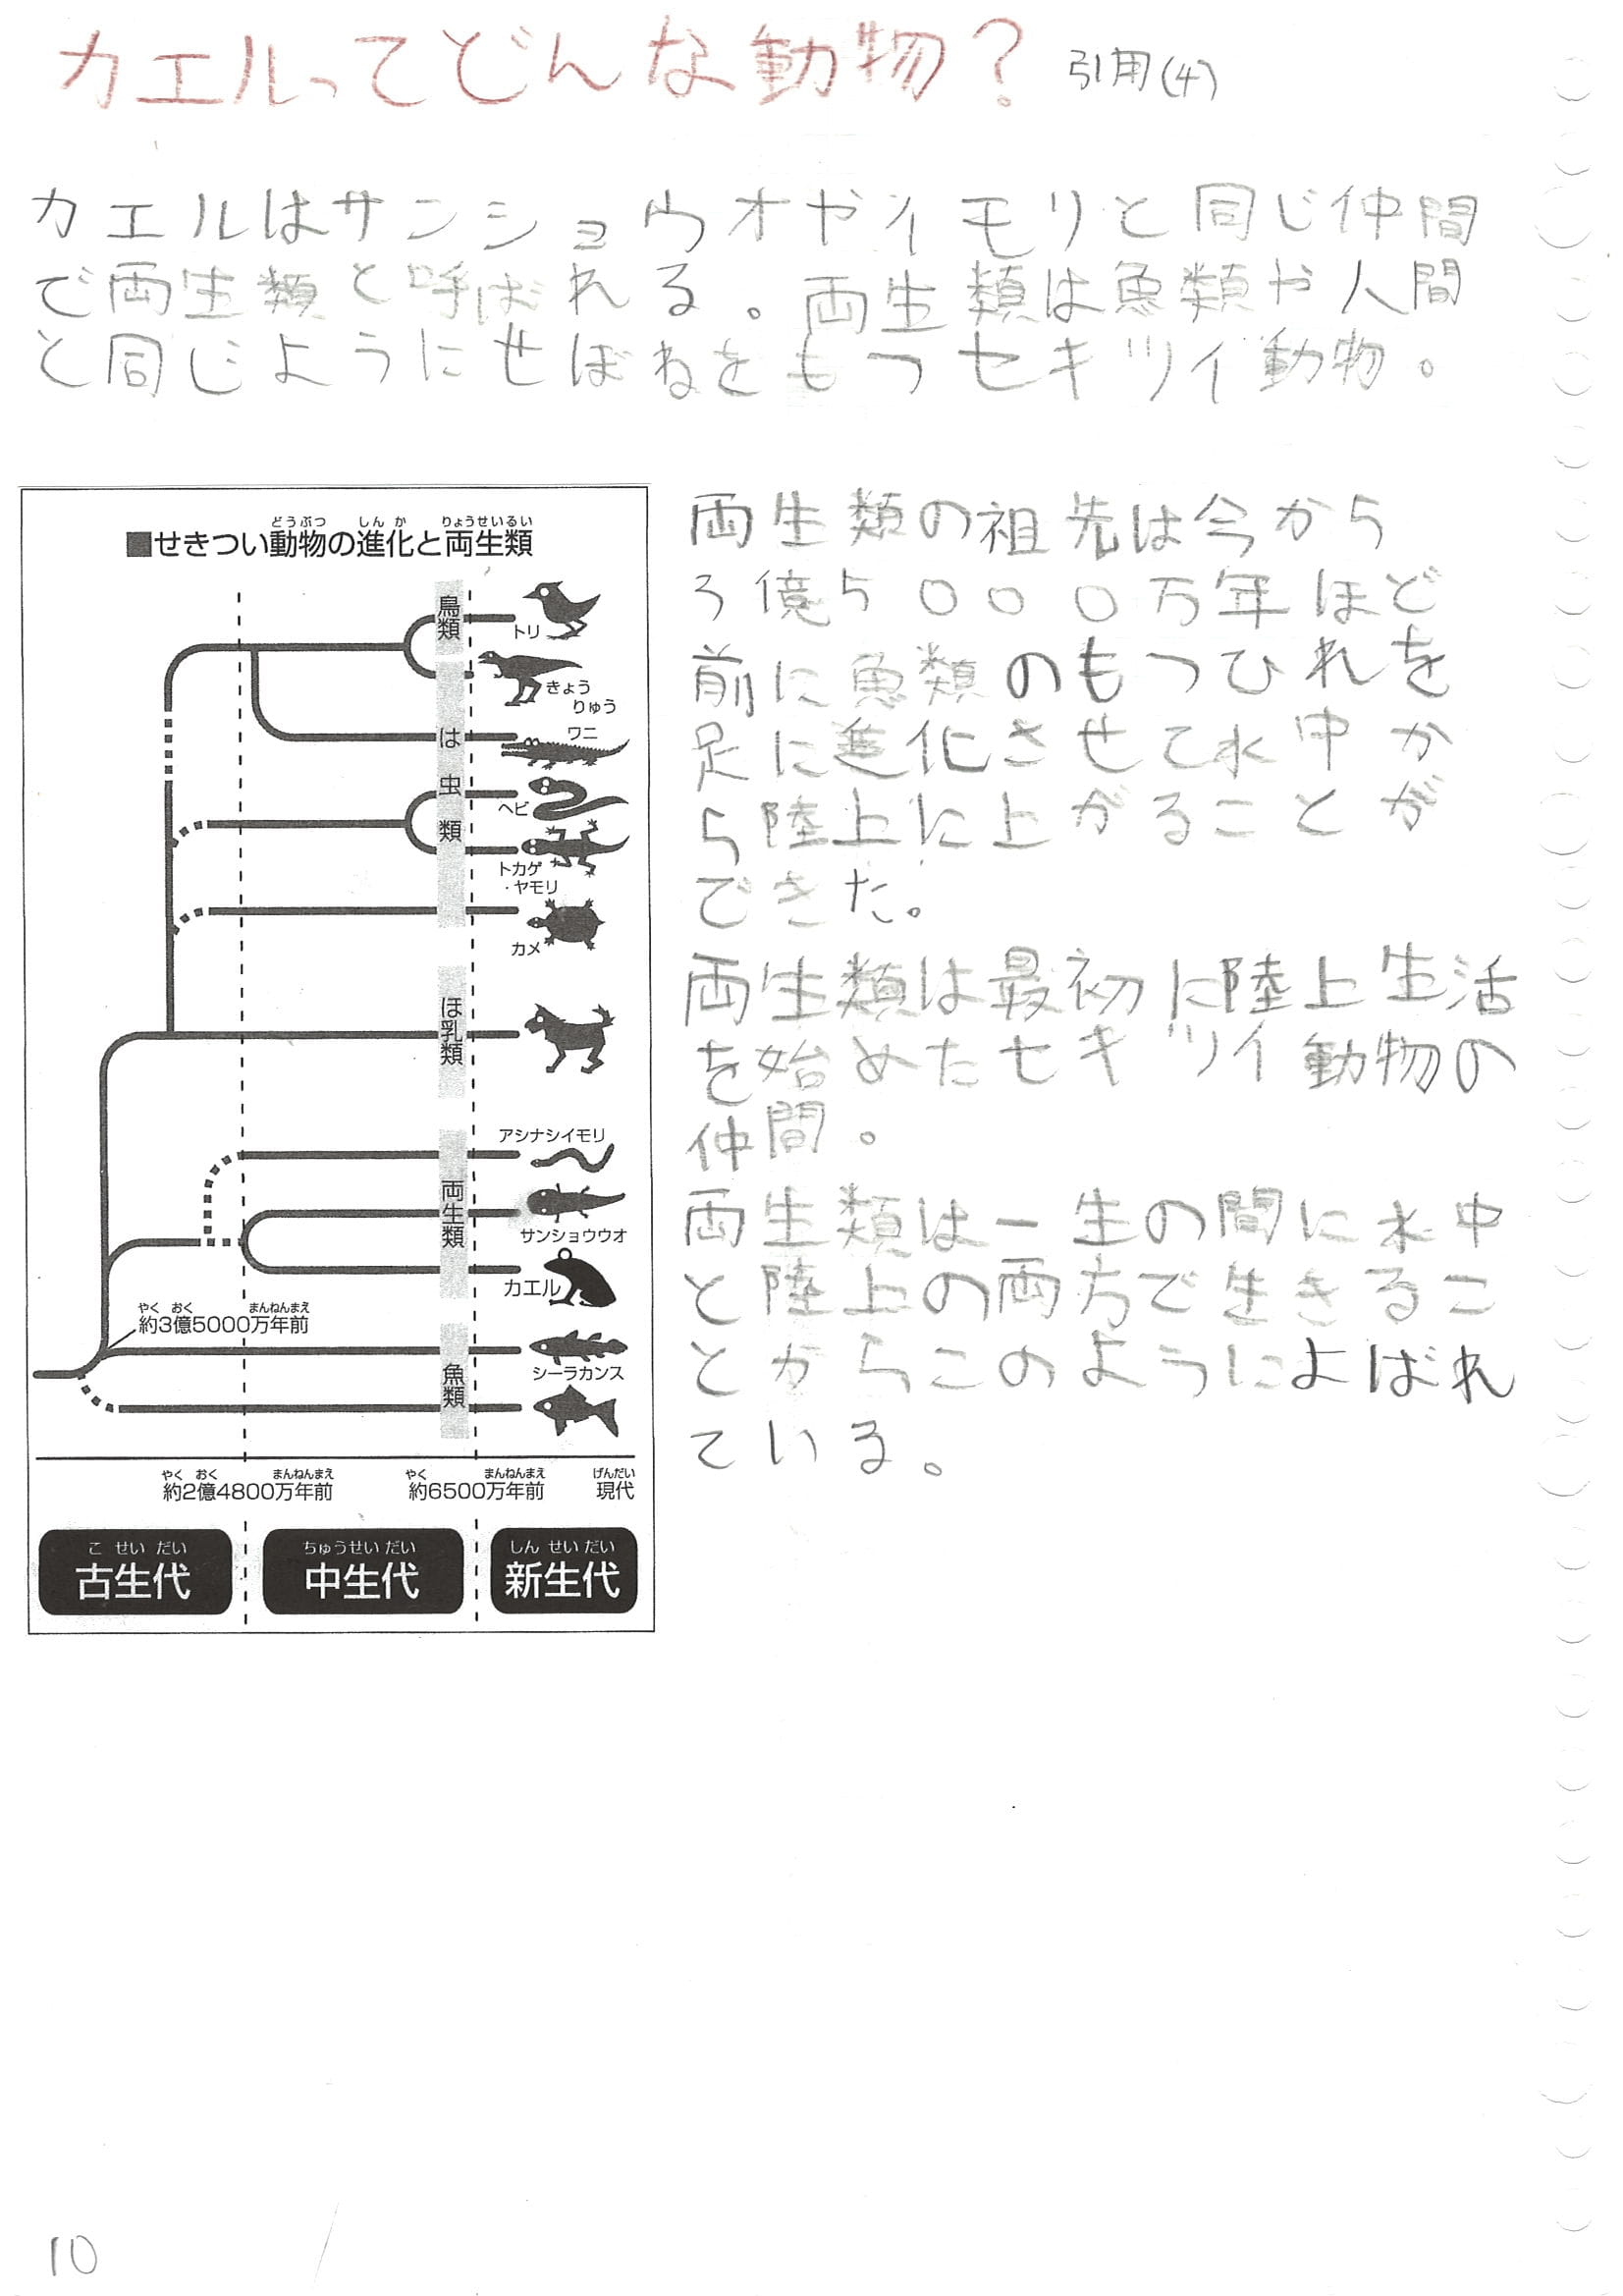 カエルってどんな動物? 引用(4)
カエルはサンショウウオやイモリと同じ仲間
で両生類と呼ばれる。両生類は魚類や人間
と同じようにせぼねをもつセキツイ動物。
どうぶつ しんか りょうせいるい
■せきつい動物の進化と両生類
鳥類
トリ
きょう
りゅう
は虫類
ワニ
ヘビ
トカゲ
・ヤモリ
カメ
ほ乳類
両生類
アシナシイモリ
サンショウウオ
カエル
やく おく まんねんまえ
約3億5000万年前
魚類
シーラカンス
やく おく まんねんまえ やく まんねんまえ げんだい
約2億4800万年前 約6500万年前 現代
こ せい だい ちゅうせい だい しん せい だい
古生代 中生代 新生代
両生類の祖先は今から
3億5000万年ほど
前に魚類のもつひれを
足に進化させて水中か
ら陸上に上がることが
できた。
両生類は最初に陸上生活
を始めたセキツイ動物の
仲間。
両生類は一生の間に水中
と陸上の両方で生きるこ
とからこのようによばれ
ている。
10